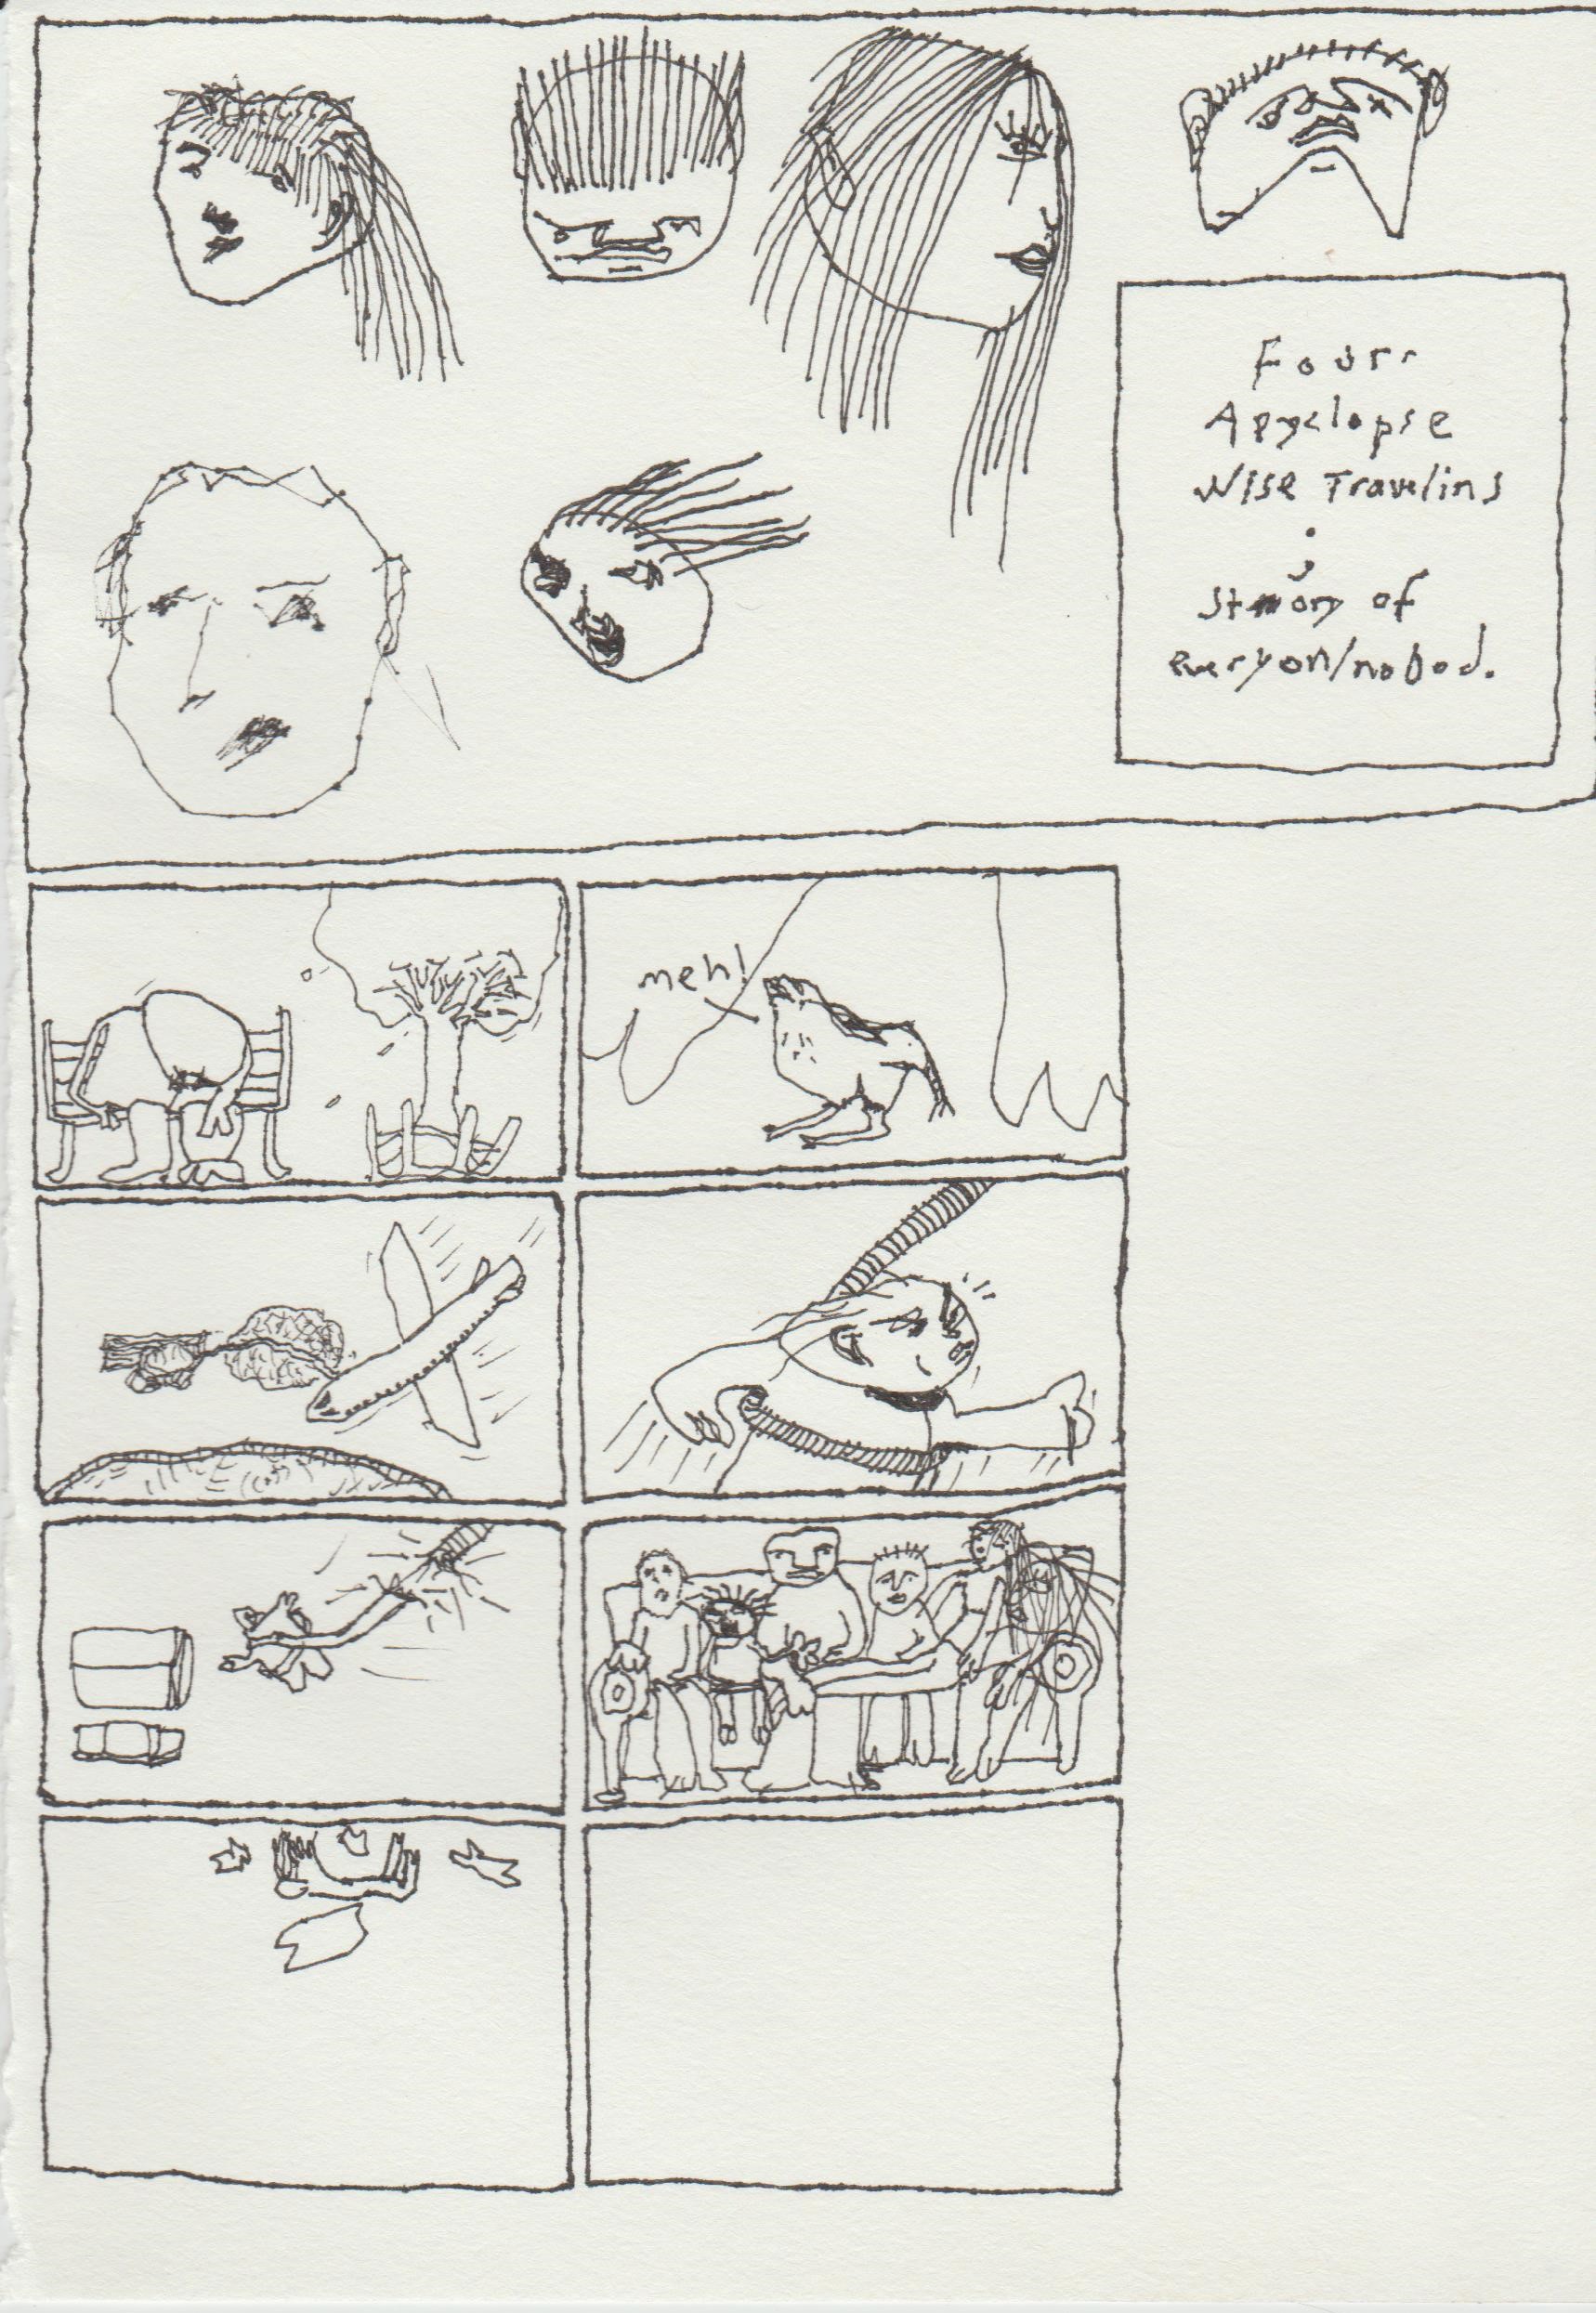 Fourr
Apyclopse
Wise Travelins
:
Stmory of
everyon/nobod.
meh!